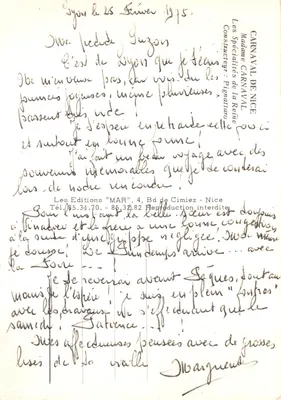 Lyon le 25 Février 1975.
Ma petite Suzon
C'est de Lyon que je t'écris
Ne m'en veux pas, car vois-tu les
journées joyeuses, même pluvieuses
passent très vite !
Je t'espère en retraite cette fois ci
et surtout en bonne forme !
J'ai fait un beau voyage avec des
souvenirs mémorables que je te conterai
lors de notre rencontre.
Pour l'instant la belle sœur est toujours
à et le frère a une bonne congestion
à la suite d'une grippe négligée.
je tousse ! Le Printemps arrive ... avec
la Foire ...
Je te reverrai avant Pâques, tout au
moins je l'espère ! Je suis en plein
avec les travaux qui ne s'effectuent que le
samedi ! Patience ... !
Mes affectueuses pensées avec de grosses
bises de ta vieille
Marguerite
CARNAVAL DE NICE
Madame CARNAVAL
Les Spécialités de la Reine
Constructeur : Pignatrum
Les Editions "MAR", 4, Bd de Cimiez - Nice
Tél. 85.34.70. - 85.32.82 Reproduction interdite